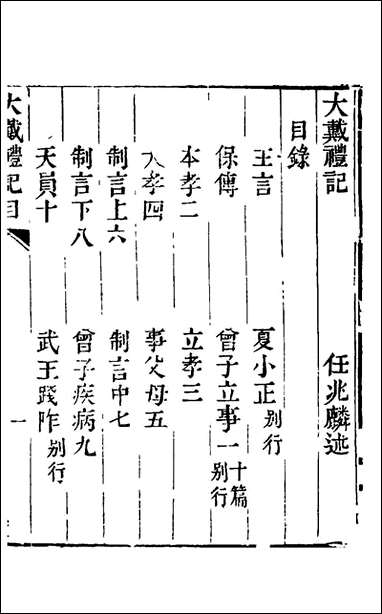 大戴禮記　任兆麟述
目錄
王言　夏小正别行
保傅　曾子立事一十篇别行
本孝二　立孝三
大孝四　事父母五
制言上六　制言中七
制言下八　曾子疾病九
天員十　武王踐阼别行
大戴禮記目　一